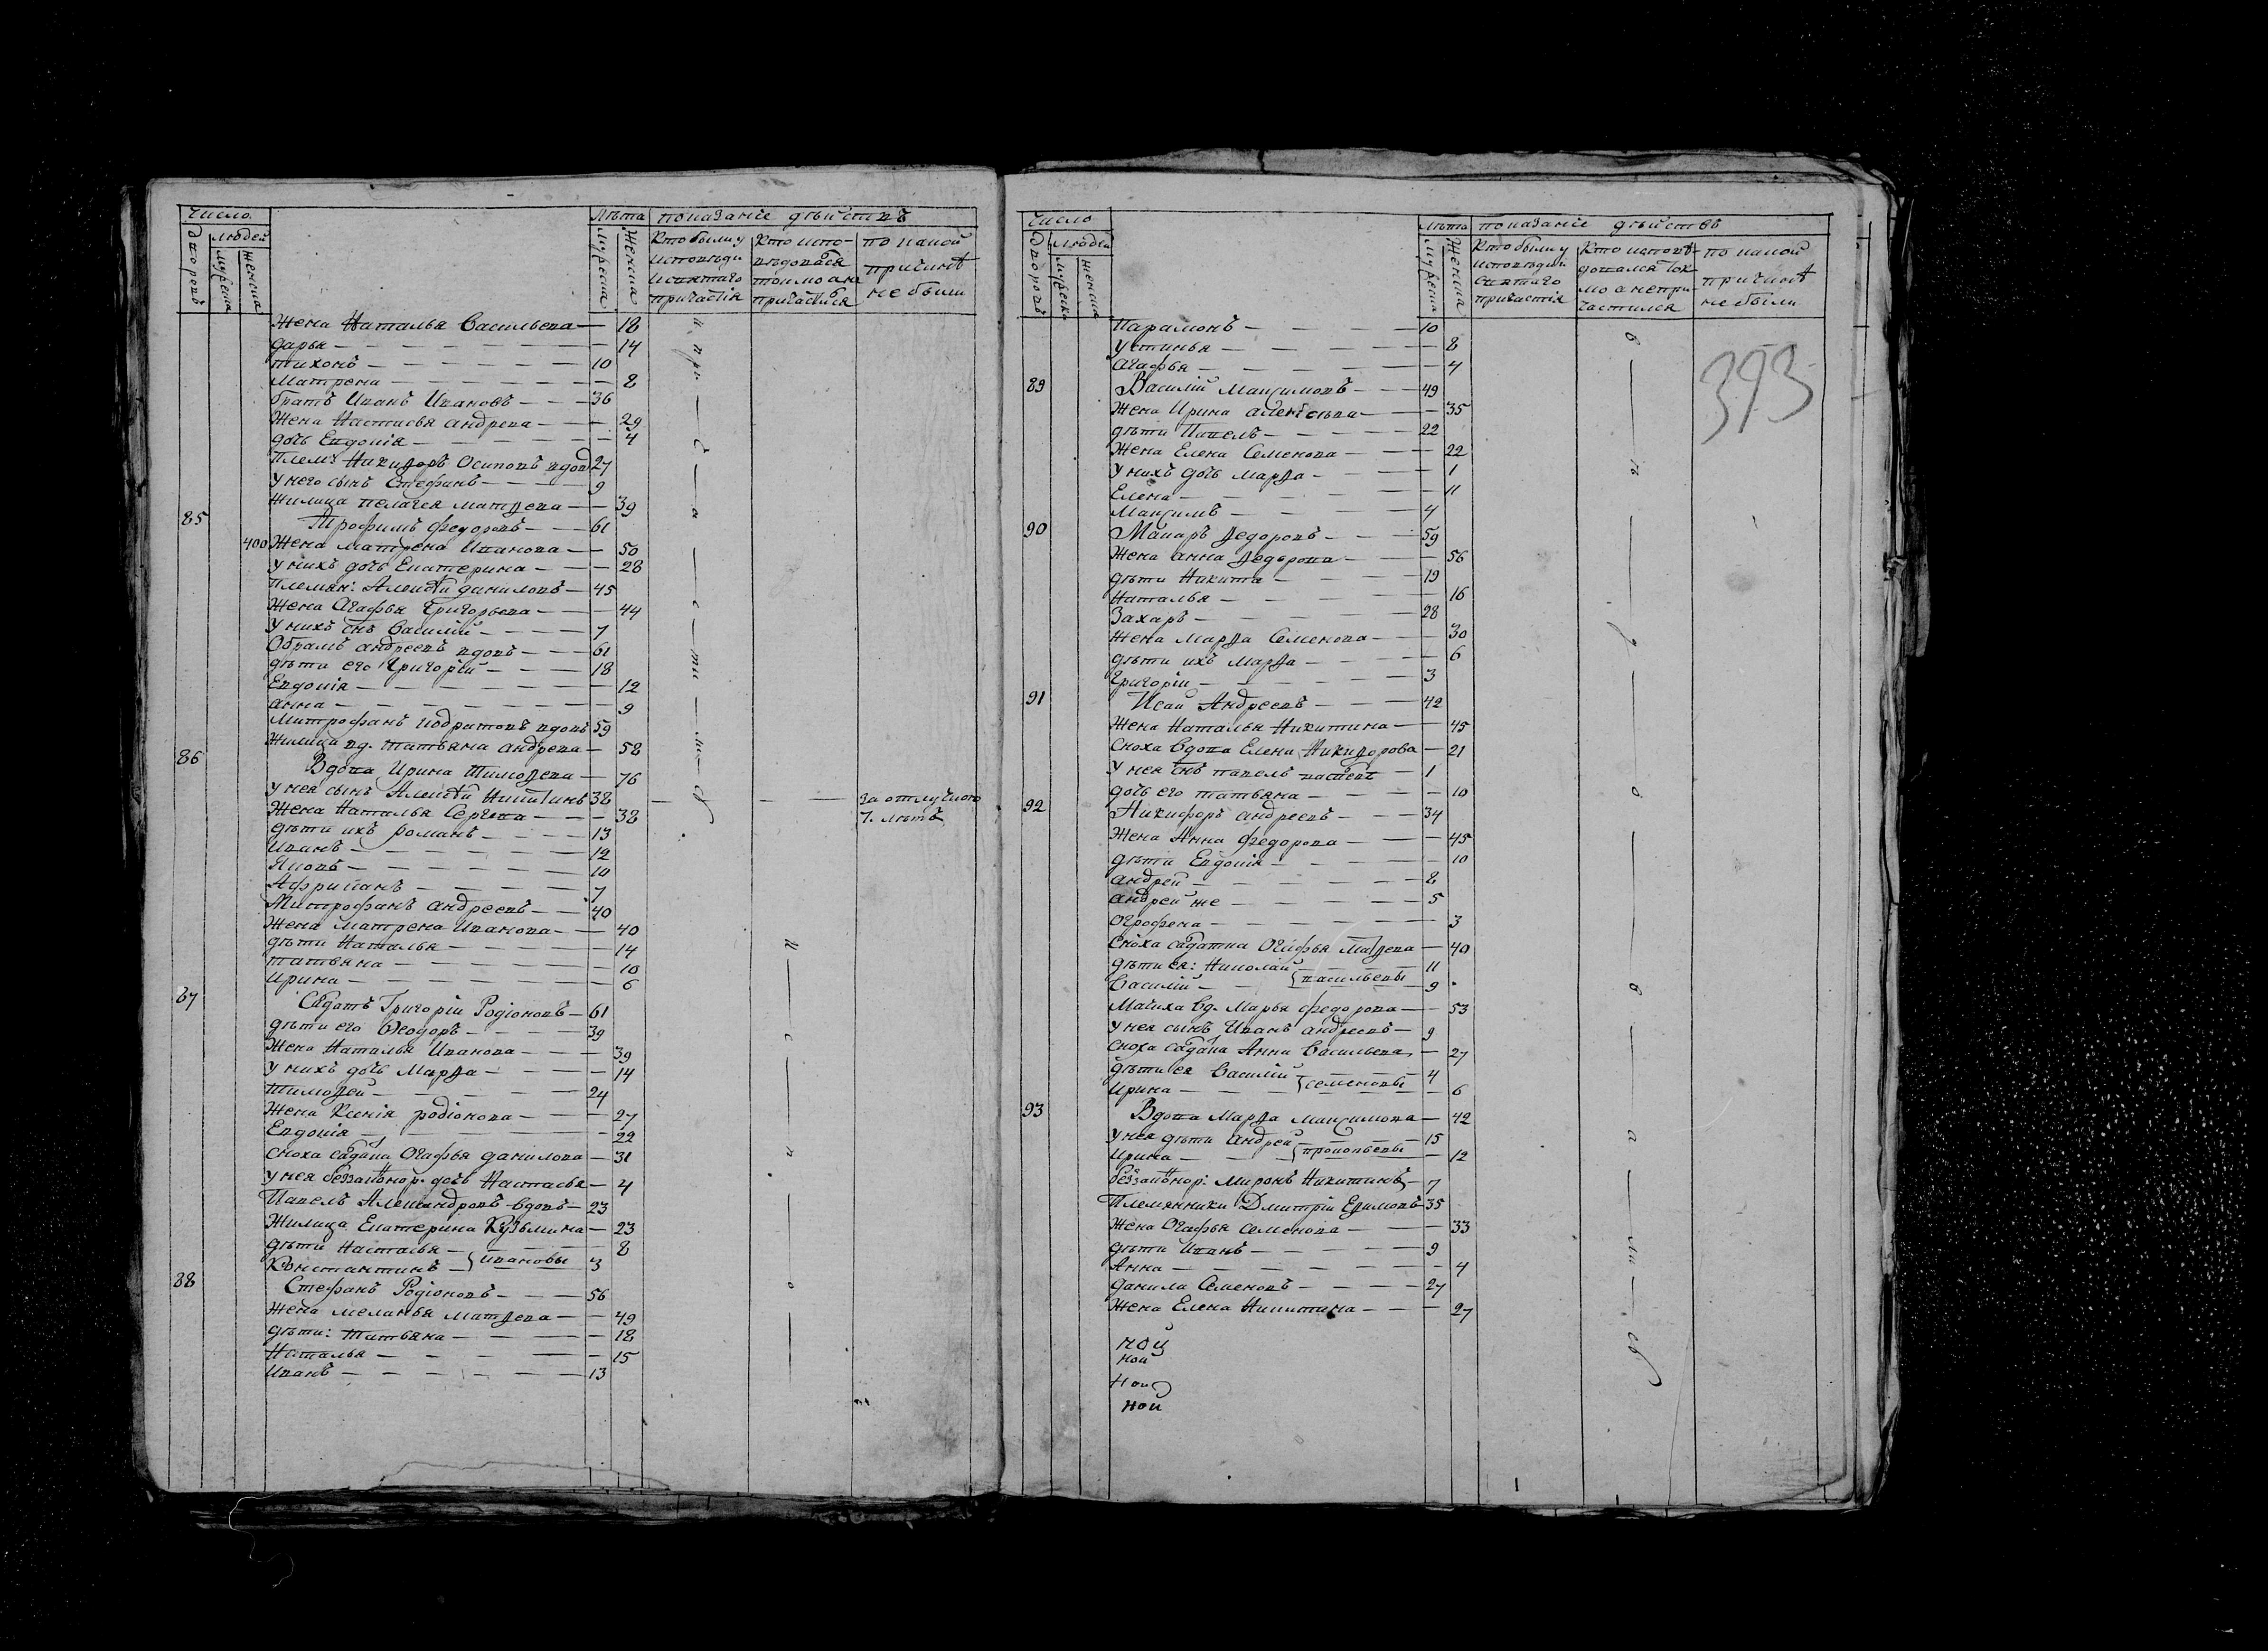 Число
Лѣта показаніе дѣйствъ
Дворовъ
людей
мужеска
женска
мужеска
женска
Кто были у
исповѣди
и святаго
причастія
Кто испо-
вѣдовался
токмо а не
причастился
по какой
причинѣ
не были
Жена Наталья Васильева — 18
дарья — 14
тихонъ — 10
Матрена — 8
братъ Иванъ Ивановъ — 36
Жена Настасья андрева — 29
дочь Евдокія — 4
Плем: Никифоръ Осиповъ вдов 27
у него сынъ Стефанъ — 9
Жилица пелагея матфева — 39
85 Трофимъ федоровъ — 61
400 Жена матрена Иванова — 50
у нихъ дочь Екатерина — 28
племян: Алексѣй даниловъ — 45
Жена Агафья Григорьева — 44
у нихъ снъ Василій — 7
Обрамъ андреевъ вдовъ — 61
дѣти его Григорій — 18
Евдокія — 12
анна — 9
Митрофанъ кодратовъ вдовъ 59
Жилица вд. татьяна андрева — 58
86 Вдова Ирина Тимофева — 76
у нея сынъ Алексѣй Никитинъ 38 — за отлучкою
Жена Наталья Сергева — 38 7. лѣтъ
дѣти ихъ романъ — 13
Иванъ — 12
Яковъ — 10
Африканъ — 7
Митрофанъ андреевъ — 40
Жена матрена Иванова — 40
дѣти Наталья — 14
татьяна — 10
Ирина — 6
87 Садатъ Григорій Родіоновъ — 61
дѣти его Феодоръ — 39
Жена Наталья Иванова — 39
у нихъ дочь Марфа — 14
тимофей — 24
Жена Ксенія родіонова — 27
Евдокія — 22
сноха садака Огафья данилова — 31
у нея беззаконор. дочь Настасья — 4
Павелъ Александровъ вдовъ — 23
Жилица Екатерина Кузьмина — 23
дѣти Настасья — 8
Константинъ — ивановы 3
88 Стефанъ Родіоновъ — 56
Жена меланья матфева — 49
дѣти: татьяна — 18
Наталья — 15
Иванъ — 13
Число
Лѣта показаніе дѣйствъ
Дворовъ
людей
мужеска
женска
мужеска
женска
Кто были у
исповѣди и
святаго
причастія
Кто исповѣ-
довался ток-
мо а непри-
частился
по какой
причинѣ
не были
393
Парамонъ — 10
устинья — 8
агафья — 4
89 Василій Максимовъ — 49
Жена Ирина алексѣева — 35
дѣти Павелъ — 22
Жена Елена Семенова — 22
у нихъ дочь марфа — 1
Елена — 11
Максимъ — 4
90 Макаръ федоровъ — 59
Жена анна федорова — 56
дѣти Никита — 19
Наталья — 16
Захаръ — 28
Жена Марфа Семенова — 30
дѣти ихъ Марфа — 6
Григорій — 3
91 Исай Андреевъ — 42
Жена Наталья Никитина — 45
сноха вдова Елена Никифорова — 21
у нея снъ павелъ — 1
дочь его татьяна — 10
92 Никифоръ андреевъ — 34
Жена Анна федорова — 45
дѣти Евдокія — 10
андрей — 8
андрей же — 5
Огрофена — 3
сноха садатка Огафья Матфева — 40
дѣти ея: Николай — 11
Василій — васильевы 9
Мачиха вд. Марья федорова — 53
у нея сынъ Иванъ андреевъ — 9
сноха садака Анна Васильева — 27
дѣти ея Василій — 4
Ирина — семеновы — 6
93 Вдова Марфа максимова — 42
у нея дѣти андрей — 15
Ирина — прокопьевы — 12
беззаконор: Миронъ Никитинъ — 7
Племянники Дмитрій Ефимовъ 35
Жена Огафья семенова — 33
дѣти Иванъ — 9
Анна — 4
данила Семеновъ — 27
Жена Елена Никитина — 27
ной
ной
ной
ной